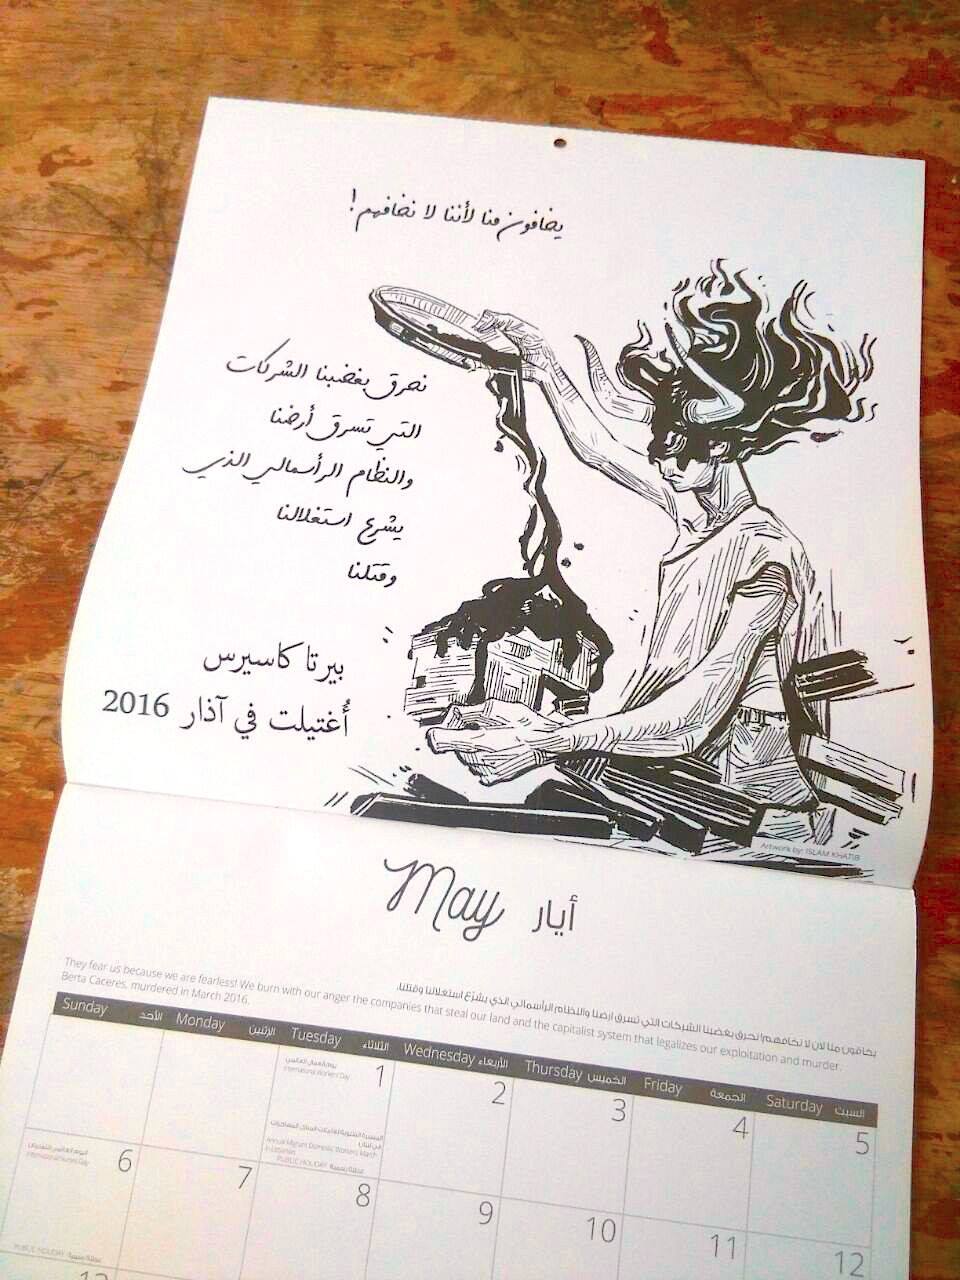 يخافون منا لأننا لا نخافهم!
نحرق بغضبنا الشركات
التي تسرق أرضنا
والنظام الرأسمالي الذي
يشرع استغلالنا
وقتلنا
بيرتا كاسيرس
أُغتيلت في آذار 2016
Artwork by: ISLAM KHATIB
May أيار
يخافون منا لان لا نخافهم! نحرق بغضبنا الشركات التي تسرق ارضنا والنظام الرأسمالي الذي يشرّع استغلالنا وقتلنا.
They fear us because we are fearless! We burn with our anger the companies that steal our land and the capitalist system that legalizes our exploitation and murder.
Berta Caceres, murdered in March 2016.
Sunday الأحد Monday الإثنين Tuesday الثلاثاء Wednesday الأربعاء Thursday الخميس Friday الجمعة Saturday السبت
1 2 3 4 5
يوم العمال العالمي
International Workers' Day
Annual Migrant Domestic Workers March
in Lebanon
PUBLIC HOLIDAY عطلة رسمية
6 7 8 9 10 11 12
PUBLIC HOLIDAY عطلة رسمية
13